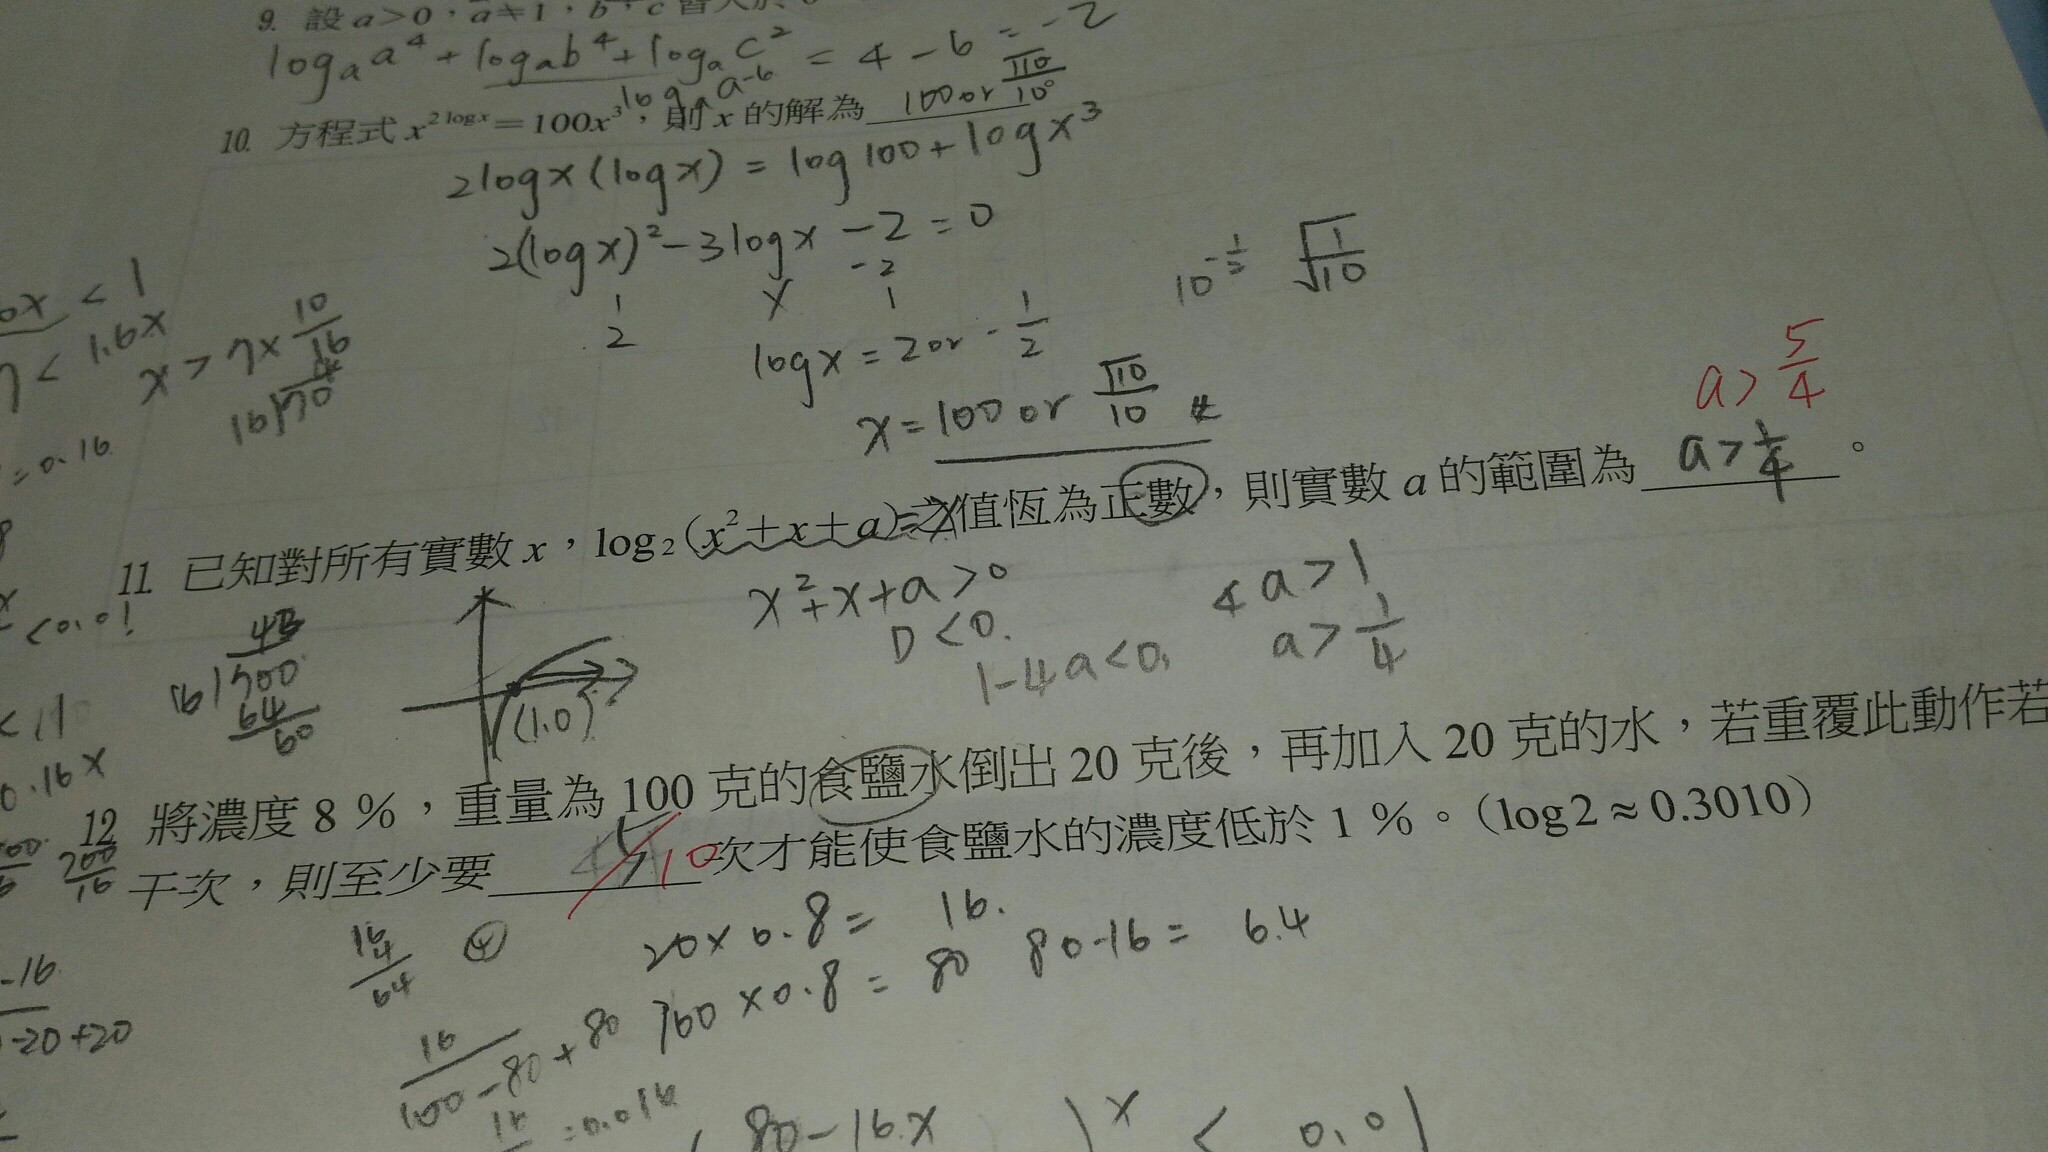 9. 設 a>0，a≠1，b，c
logₐa⁴ + logₐb⁴ + logₐc² = 4 - 6 = -2
logₐa⁻⁶
10. 方程式 x^{2 log x} = 100x³，則 x 的解為 100 or √10/10
2logx(logx) = log100 + logx³
2(logx)² - 3logx - 2 = 0
1 -2
2 1
logx = 2 or -1/2
x = 100 or √10/10
10^{-1/2} √(1/10)
< 1
< 1.6x
x > 7 × 10/16
= 0.16
a > 5/4
11. 已知對所有實數 x，log₂(x²+x+a)之值恆為正數，則實數 a 的範圍為 a > 1/4。
x²+x+a > 0
D < 0.
1-4a < 0.
4a > 1
a > 1/4
< 0.01
(1.0)
0.16x
12 將濃度 8 %，重量為 100 克的食鹽水倒出 20 克後，再加入 20 克的水，若重覆此動作若
干次，則至少要 10 次才能使食鹽水的濃度低於 1 %。（log2≈0.3010）
200/16
20×0.8 = 16.
100×0.8 = 80 80-16 = 6.4
16
64
-16
-20+20
16/100-80+80
= 0.016
80-16x
x < 0.01